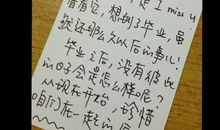 是 I miss u
看看它,想到了毕业,虽
然还那么久以后的事儿!
毕业之后,没有彼此
的日子会是怎么样呢?
从现在开始,珍惜
咱们在一起的